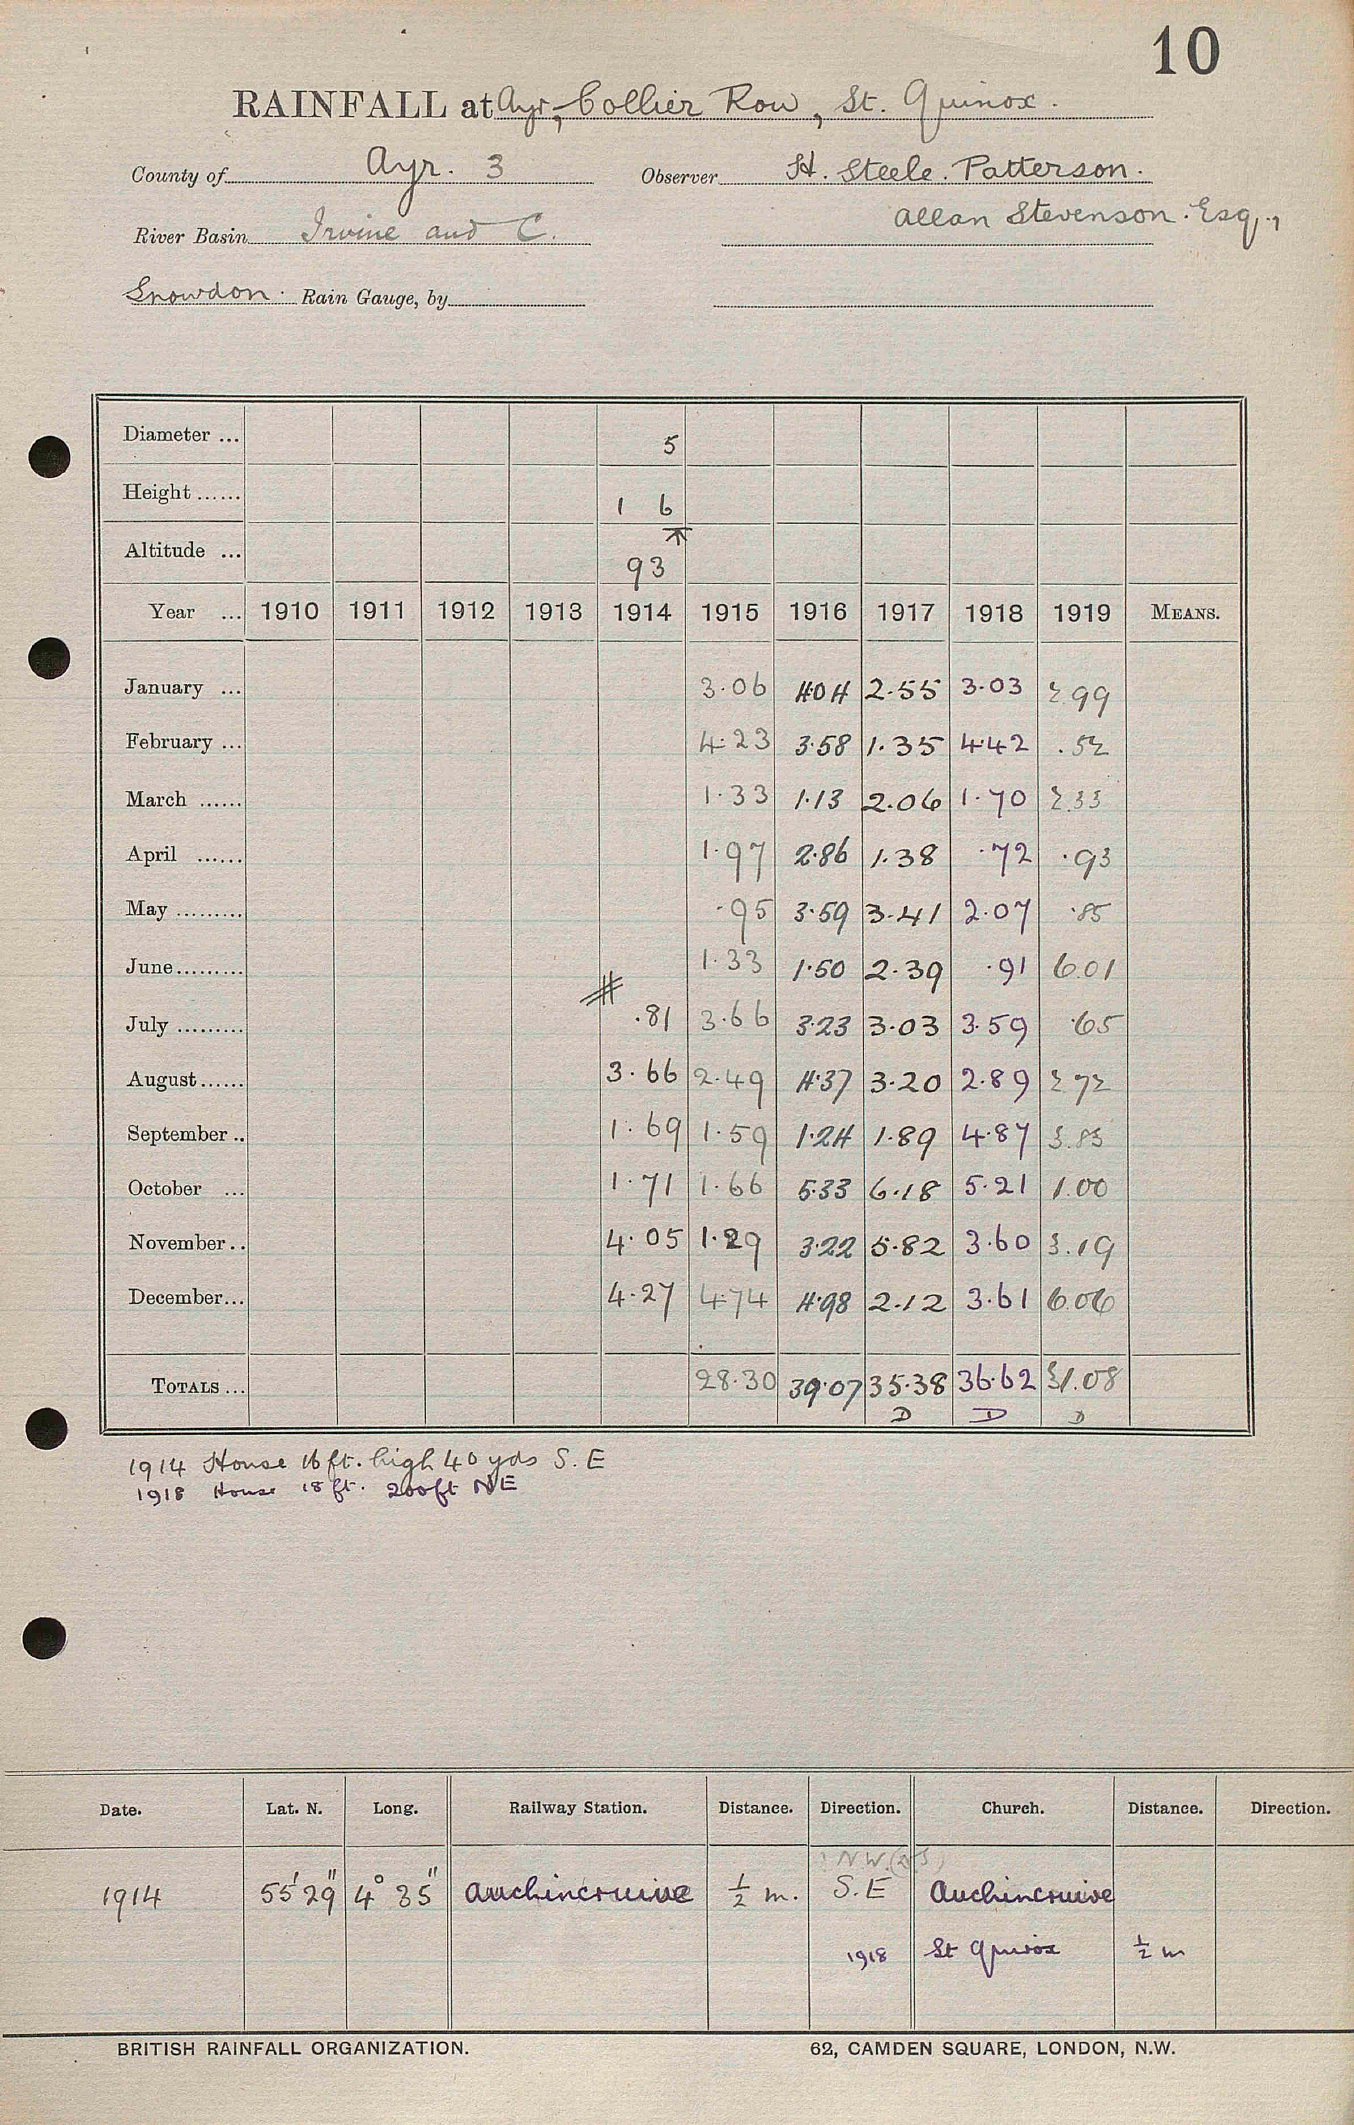 10
RAINFALL at Ayr, Collier Row, St. Quinox.
County of Ayr. 3 Observer H. Steele. Patterson.
River Basin Irvine and C. Allan Stevenson. Esq.,
Snowdon. Rain Gauge, by
Diameter ... 5
Height ...... 1 6
Altitude ... 93
Year ... 1910 1911 1912 1913 1914 1915 1916 1917 1918 1919 MEANS.
January ... 3.06 4.04 2.55 3.03 2.99
February ... 4.23 3.58 1.35 4.42 .52
March ...... 1.33 1.13 2.06 1.70 2.33
April ...... 1.97 2.86 1.38 .72 .93
May ......... .95 3.59 3.41 2.07 .85
June ......... 1.33 1.50 2.39 .91 6.01
July ......... # .81 3.66 3.23 3.03 3.59 .65
August ...... 3.66 2.49 4.37 3.20 2.89 2.72
September .. 1.69 1.59 1.24 1.89 4.87 3.83
October ... 1.71 1.66 5.33 6.18 5.21 1.00
November .. 4.05 1.29 3.22 5.82 3.60 3.19
December ... 4.27 4.74 4.98 2.12 3.61 6.06
TOTALS ... 28.30 39.07 35.38 36.62 31.08
D D D
1914 House 16 ft. high 40 yds S. E
1918 House 18 ft. 200ft NE
Date. Lat. N. Long. Railway Station. Distance. Direction. Church. Distance. Direction.
N.W.
1914 55' 29" 4° 35" Auchincruive ½ m. S.E Auchincruive
1918 St Quivox ½ m
BRITISH RAINFALL ORGANIZATION. 62, CAMDEN SQUARE, LONDON, N.W.